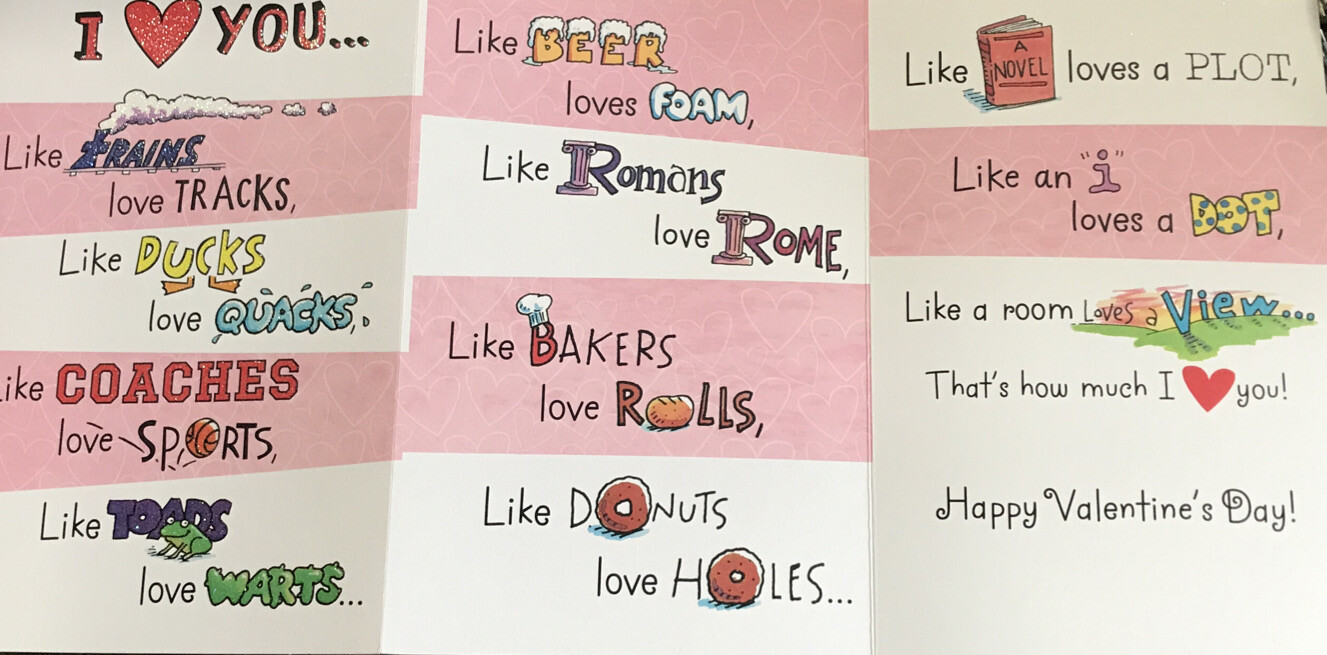 I ♥ YOU...
Like TRAINS
love TRACKS,
Like DUCKS
love QUACKS,
Like COACHES
love SPORTS,
Like TOADS
love WARTS...
Like BEER
loves FOAM,
Like Romans
love ROME,
Like BAKERS
love ROLLS,
Like DONUTS
love HOLES...
Like A NOVEL loves a PLOT,
Like an "i"
loves a DOT,
Like a room Loves a View...
That's how much I ♥ you!
Happy Valentine's Day!